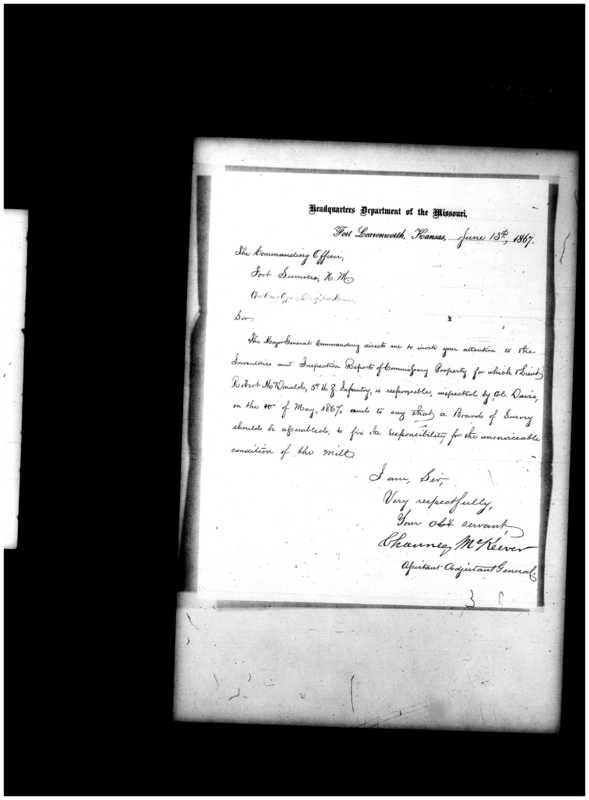 Headquarters Department of the Missouri,
Fort Leavenworth, Kansas, June 15th, 1867.
The Commanding Officer,
Fort Sumner, N. M.
Sir,
The Major General Commanding directs me to invite your attention to the
Inventories and Inspection Reports of Commissary Property for which 1st Lieut
Robert McDonald, 5th U. S. Infantry, is responsible, inspected by Col. Davis,
on the 10th of May, 1867, and to say that a Board of Survey
should be assembled, to fix the responsibility for the unserviceable
condition of the
I am, Sir,
Very respectfully,
Your obt servant,
Chauncey McKeever
Assistant Adjutant General.